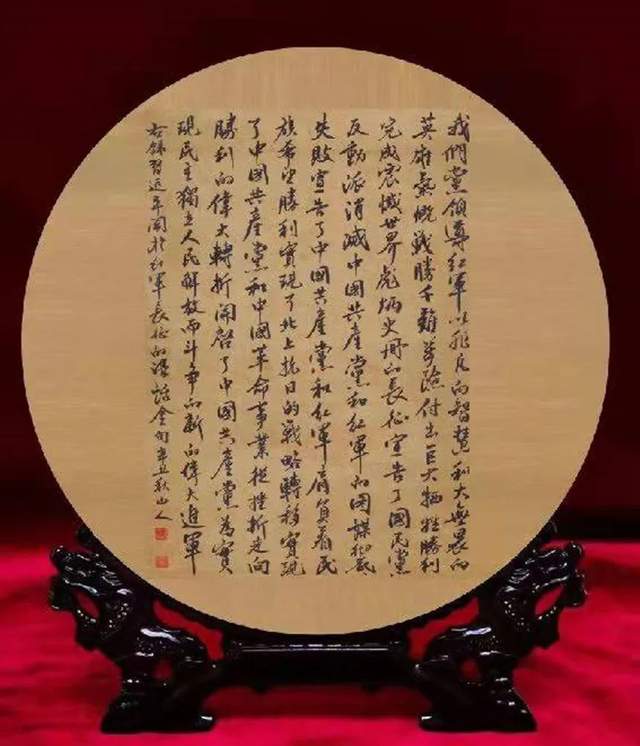 我們黨領導紅軍以非凡的智慧和大無畏的
英雄氣概戰勝千難萬險付出巨大犧牲勝利
完成震憾世界彪炳史冊的長征宣告了國民黨
反動派消滅中國共產黨和紅軍的圖謀徹底
失敗宣告了中國共產黨和紅軍肩負着民
族希望勝利實現了北上抗日的戰略轉移實現
了中國共產黨和中國革命事業從挫折走向
勝利的偉大轉折開啓了中國共產黨為實
現民主獨立人民解放而斗争的新的偉大進軍
右錄習近平關於紅軍長征的講話金句辛丑秋山人